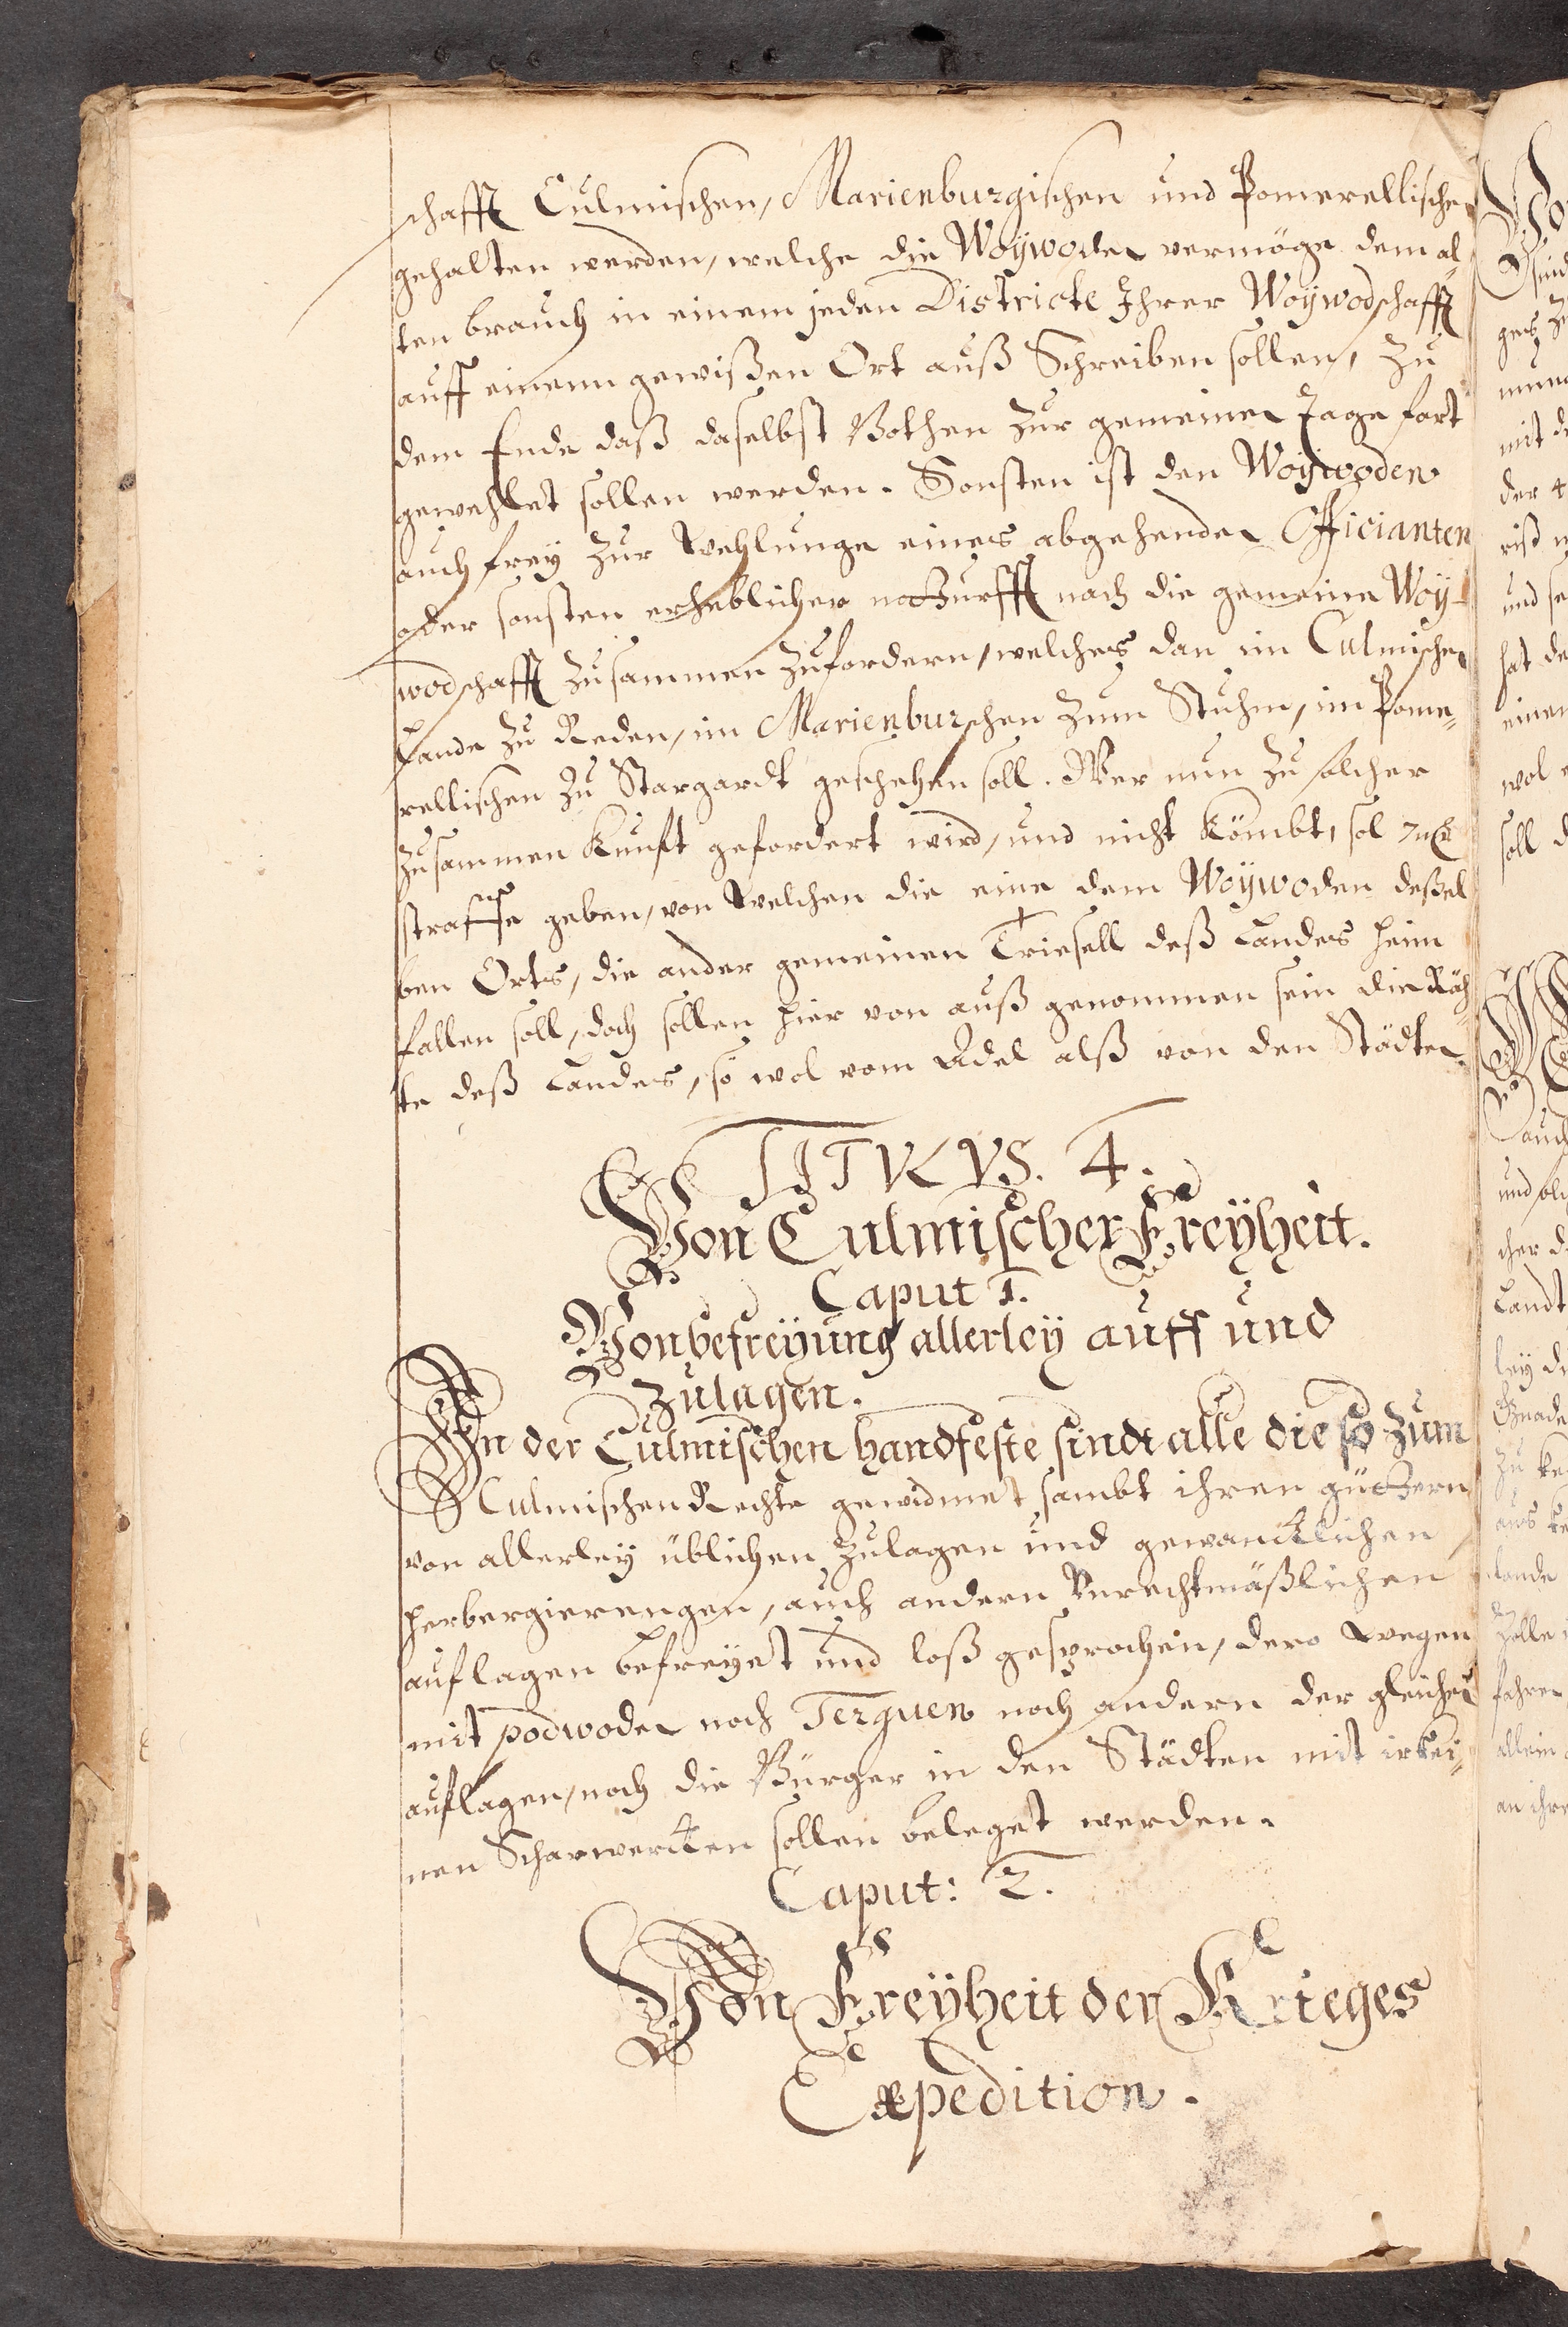 schafft Culmischen, Marienburgischen und Pomerellischen
gehalten werden, welche die Woÿwoden vermöge dem al¬
ten brauch in einem jeden Districte Ihrer Woÿwodschafft
auff einem gewißen Ort auß Schreiben sollen, zu
dem Ende daß daselbst Bothen zur gemeinen Tage fart
gewehlet sollen werden. Sonsten ist den Woÿwoden
auch freÿ zur Wehlunge eines abgehenden Officianten
oder sonsten erheblicher notturfft nach die gemeine Woÿ-
wodschafft zusammen zufordern, welches dan im Culmischen
Lande zu Reden, im Marienburschen zum Stuhm, im Pome¬
rellischen zu Stargardt geschehen soll. Wer nun zu solcher
zusammen Kunfft gefordert wird, und nicht Kömbt, sol
straffe geben, von Welchen die eine dem Woÿwoden deßel
ben Orts, die ander gemeinen Triesell deß Landes heim
fallen soll, doch sollen hier von auß genommen sein die Räh¬
te deß Landes, so wol vom Adel alß von den Städten.
TITVLVS. 4.
Von Culmischer Freÿheit.
Caput 1.
Von befreÿung allerleÿ auff und
Zulagen.
In der Culmischen handfeste sindt alle die so zum
Culmischen Rechte gewidmet sambt ihren güttern
von allerleÿ üblichen Zulagen und gewancklichen
herbergierengen, auch andern Unrechtmäßlichen
auflagen befreÿet und loß gesprochen, dero Wegen
mit podwoden noch Terguen noch andern der gleichen
auflagen, noch die Bürger in den Städten mit irkei¬
nen Scharwercken sollen beleget werden.
Caput: 2.
Von Freÿheit der Krieges
Expedition.